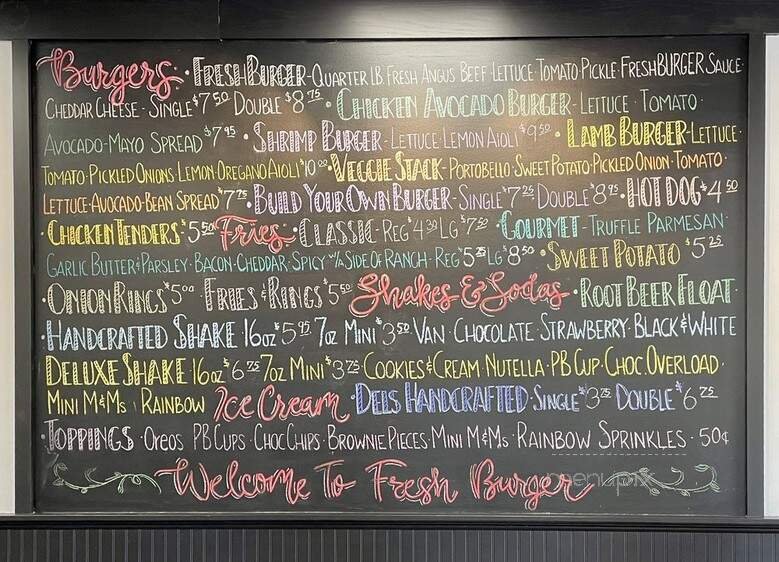 Burgers · FRESH BURGER - QUARTER LB FRESH ANGUS BEEF LETTUCE · TOMATO · PICKLE · FRESH BURGER SAUCE ·
CHEDDAR CHEESE · SINGLE $7 50 DOUBLE $8 75 · CHICKEN AVOCADO BURGER - LETTUCE · TOMATO ·
AVOCADO - MAYO SPREAD $7 95 · SHRIMP BURGER - LETTUCE LEMON AIOLI $9 50 · LAMB BURGER - LETTUCE ·
TOMATO · PICKLED ONIONS · LEMON · OREGANO AIOLI $10 00 · VEGGIE STACK - PORTOBELLO · SWEET POTATO · PICKLED ONION · TOMATO ·
LETTUCE · AVOCADO · BEAN SPREAD $7 75 · BUILD YOUR OWN BURGER - SINGLE $7 25 DOUBLE $8 95 · HOT DOG $4 50
· CHICKEN TENDERS $5 50 Fries · CLASSIC - REG $4 30 LG $7 50 · GOURMET - TRUFFLE PARMESAN ·
GARLIC BUTTER & PARSLEY · BACON · CHEDDAR · SPICY W/A SIDE OF RANCH - REG $5 25 LG $8 50 · SWEET POTATO $5 25
· ONION RINGS $5 00 · FRIES & RINGS $5 50 Shakes & Sodas · ROOT BEER FLOAT ·
· HANDCRAFTED SHAKE 16oz $5 95 7oz MINI $3 50 VAN · CHOCOLATE · STRAWBERRY · BLACK & WHITE
DELUXE SHAKE 16oz $6 75 7oz MINI $3 75 COOKIES & CREAM · NUTELLA · PB CUP · CHOC. OVERLOAD ·
MINI M&Ms · RAINBOW Ice Cream DELS HANDCRAFTED · SINGLE $3 75 DOUBLE $6 75
· TOPPINGS · OREOS · PB CUPS · CHOC CHIPS · BROWNIE PIECES · MINI M&Ms · RAINBOW SPRINKLES · 50¢
Welcome To Fresh Burger
menupix